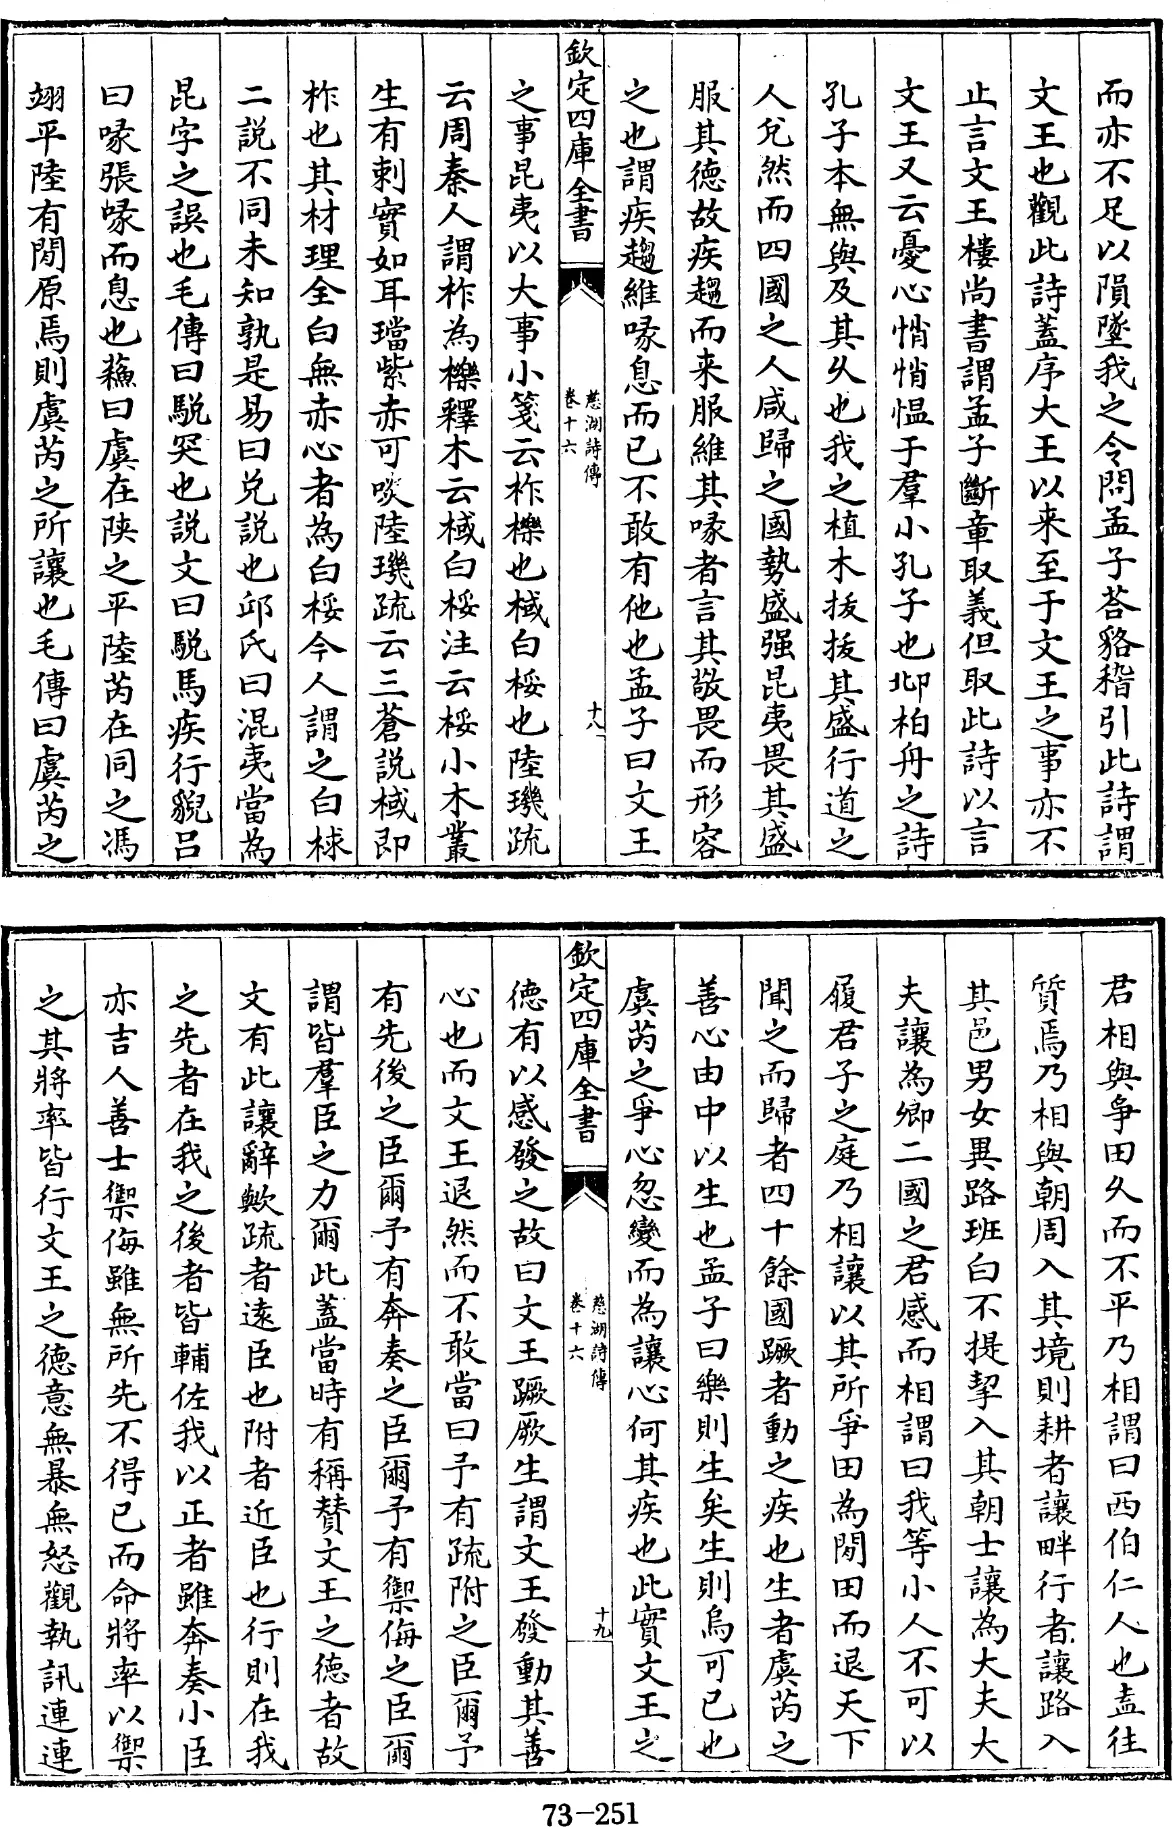 而亦不足以隕墜我之令問孟子荅貉稽引此詩謂
文王也觀此詩蓋序大王以来至于文王之事亦不
止言文王樓尚書謂孟子斷章取義但取此詩以言
文王又云憂心悄悄愠于羣小孔子也邶柏舟之詩
孔子本無與及其久也我之植木拔拔其盛行道之
人兊然而四國之人咸歸之國勢盛强昆夷畏其盛
服其德故疾趨而来服維其喙者言其敬畏而形容
之也謂疾趨維喙息而已不敢有他也孟子曰文王
欽定四庫全書
慈湖詩傳
卷十六
十八
之事昆夷以大事小箋云柞櫟也棫白桵也陸璣疏
云周秦人謂柞為櫟釋木云棫白桵注云桵小木叢
生有刺實如耳璫紫赤可啖陸璣疏云三蒼說棫即
柞也其材理全白無赤心者為白桵今人謂之白梂
二說不同未知孰是易曰兊說也邱氏曰混夷當為
昆字之誤也毛傳曰駾突也說文曰駾馬疾行貌吕
曰喙張喙而息也蘓曰虞在陜之平陸芮在同之馮
翊平陸有閒原焉則虞芮之所讓也毛傳曰虞芮之
君相與爭田久而不平乃相謂曰西伯仁人也盍往
質焉乃相與朝周入其境則耕者讓畔行者讓路入
其邑男女異路班白不提挈入其朝士讓為大夫大
夫讓為卿二國之君感而相謂曰我等小人不可以
履君子之庭乃相讓以其所爭田為閒田而退天下
聞之而歸者四十餘國蹶者動之疾也生者虞芮之
善心由中以生也孟子曰樂則生矣生則烏可已也
虞芮之爭心忽變而為讓心何其疾也此實文王之
欽定四庫全書
慈湖詩傳
卷十六
十九
德有以感發之故曰文王蹶厥生謂文王發動其善
心也而文王退然而不敢當曰予有疏附之臣爾予
有先後之臣爾予有奔奏之臣爾予有禦侮之臣爾
謂皆羣臣之力爾此蓋當時有稱賛文王之德者故
文有此讓辭歟疏者遠臣也附者近臣也行則在我
之先者在我之後者皆輔佐我以正者雖奔奏小臣
亦吉人善士禦侮雖無所先不得已而命將率以禦
之其將率皆行文王之德意無暴無怒觀執訊連連
73-251